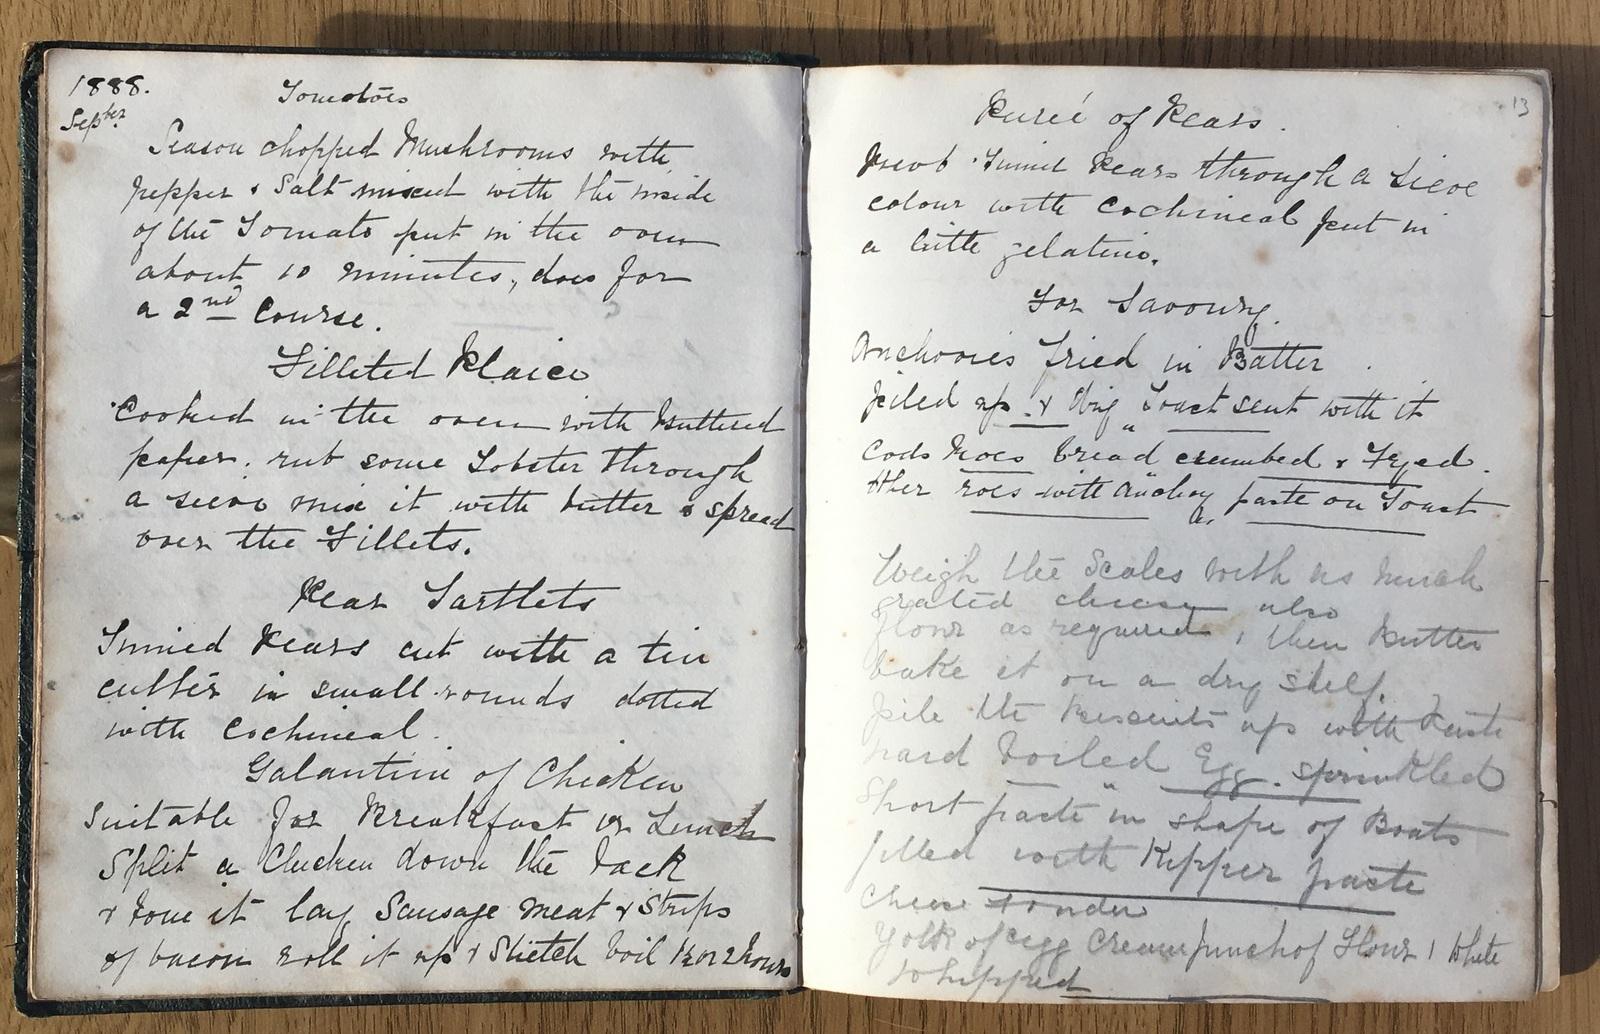 1888.
Septber
Tomatoes
Season chopped Mushrooms with
pepper & Salt mixed with the inside
of the Tomato put in the oven
about 10 minutes, does for
a 2nd Course.
Filleted Plaice
Cooked in the oven with Buttered
paper. rub some Lobster through
a sieve mix it with butter & spread
over the Fillets.
Pear Tartlets
Tinned Pears cut with a tin
cutter in small rounds dotted
with Cochineal.
Galantine of Chicken
Suitable for Breakfast or Lunch
Split a Chicken down the back
& bone it lay Sausage meat & Strips
of bacon roll it up & Stitch boil 1½ or 2 hours
13
Pureé of Pears.
Press Tinned Pears through a Sieve
colour with Cochineal put in
a little gelatine.
For Savoury.
Anchovies fried in Batter
piled up & dry Toast sent with it
Cods Roes bread crumbed & Fryed.
Other roes with Anchovy paste on Toast
Weigh the Scales with as much
grated cheese also
flour as required, then Butter
bake it on a dry shelf.
pile the Biscuits up with
hard boiled Egg. sprinkled
Short paste in shape of Boats
filled with Kipper paste
Cheese Fondue
Yolk of egg Cream pinch of Flour 1 White
Whipped